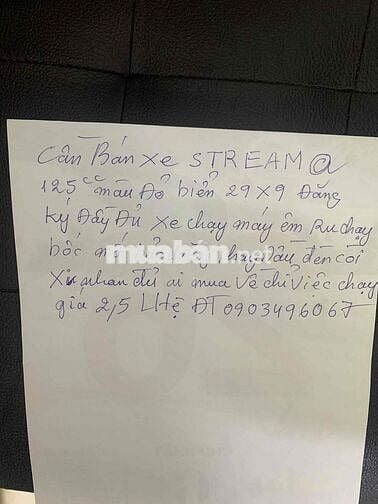 Cần Bán xe STREAM @
125cc màu Đỏ biển 29X9 Đăng
ký Đầy Đủ xe chạy máy êm ru chạy
bốc đèn còi
Xi nhan đủ ai mua về chỉ việc chạy
giá 2,5 LHệ ĐT 0903496067
muaban.net